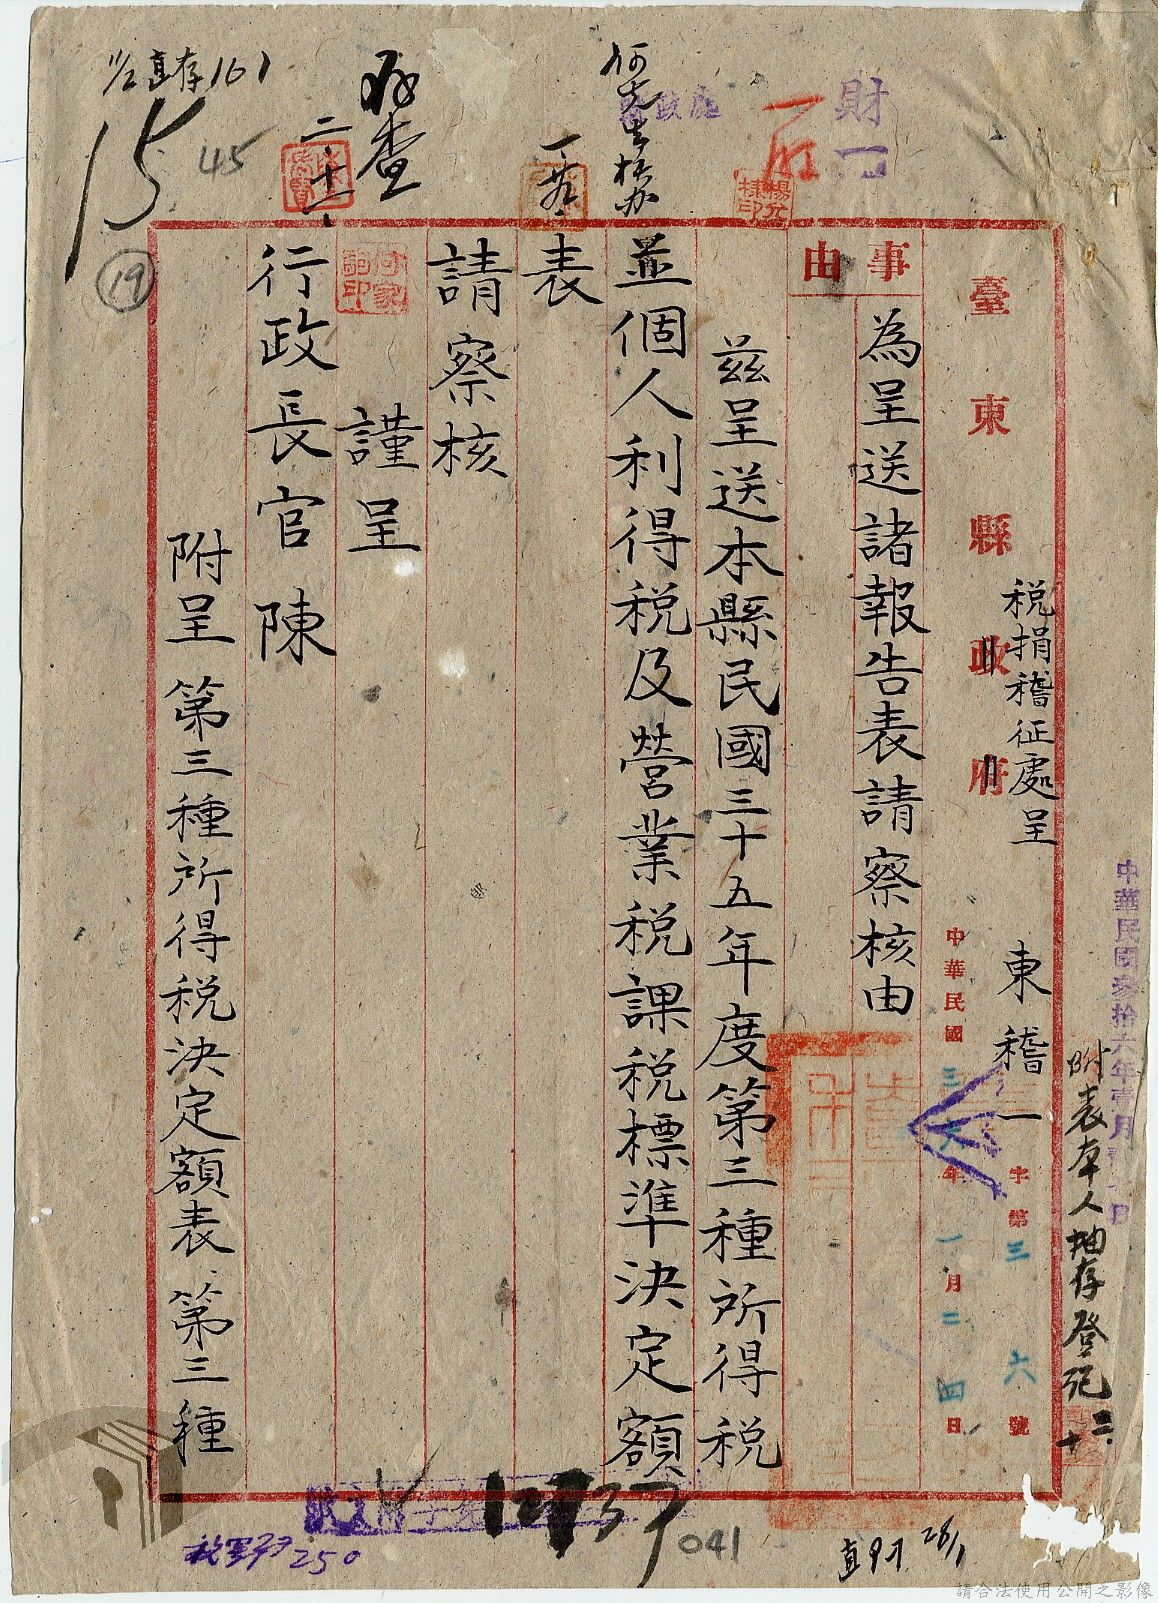 財一
臺東縣政府
稅捐稽征處呈
東稽一字第三六號
中華民國三六年一月二四日
中華民國參拾六年壹月
附表本人抽存登記
事由
為呈送諸報告表請察核由
茲呈送本縣民國三十五年度第三種所得稅
並個人利得稅及營業稅課稅標準決定額
表
請察核
謹呈
行政長官陳
附呈第三種所得稅決定額表、第三種
何先生核办
存查
二、十一、
15
45
19
12737
041
250
28/1
請合法使用公開之影像